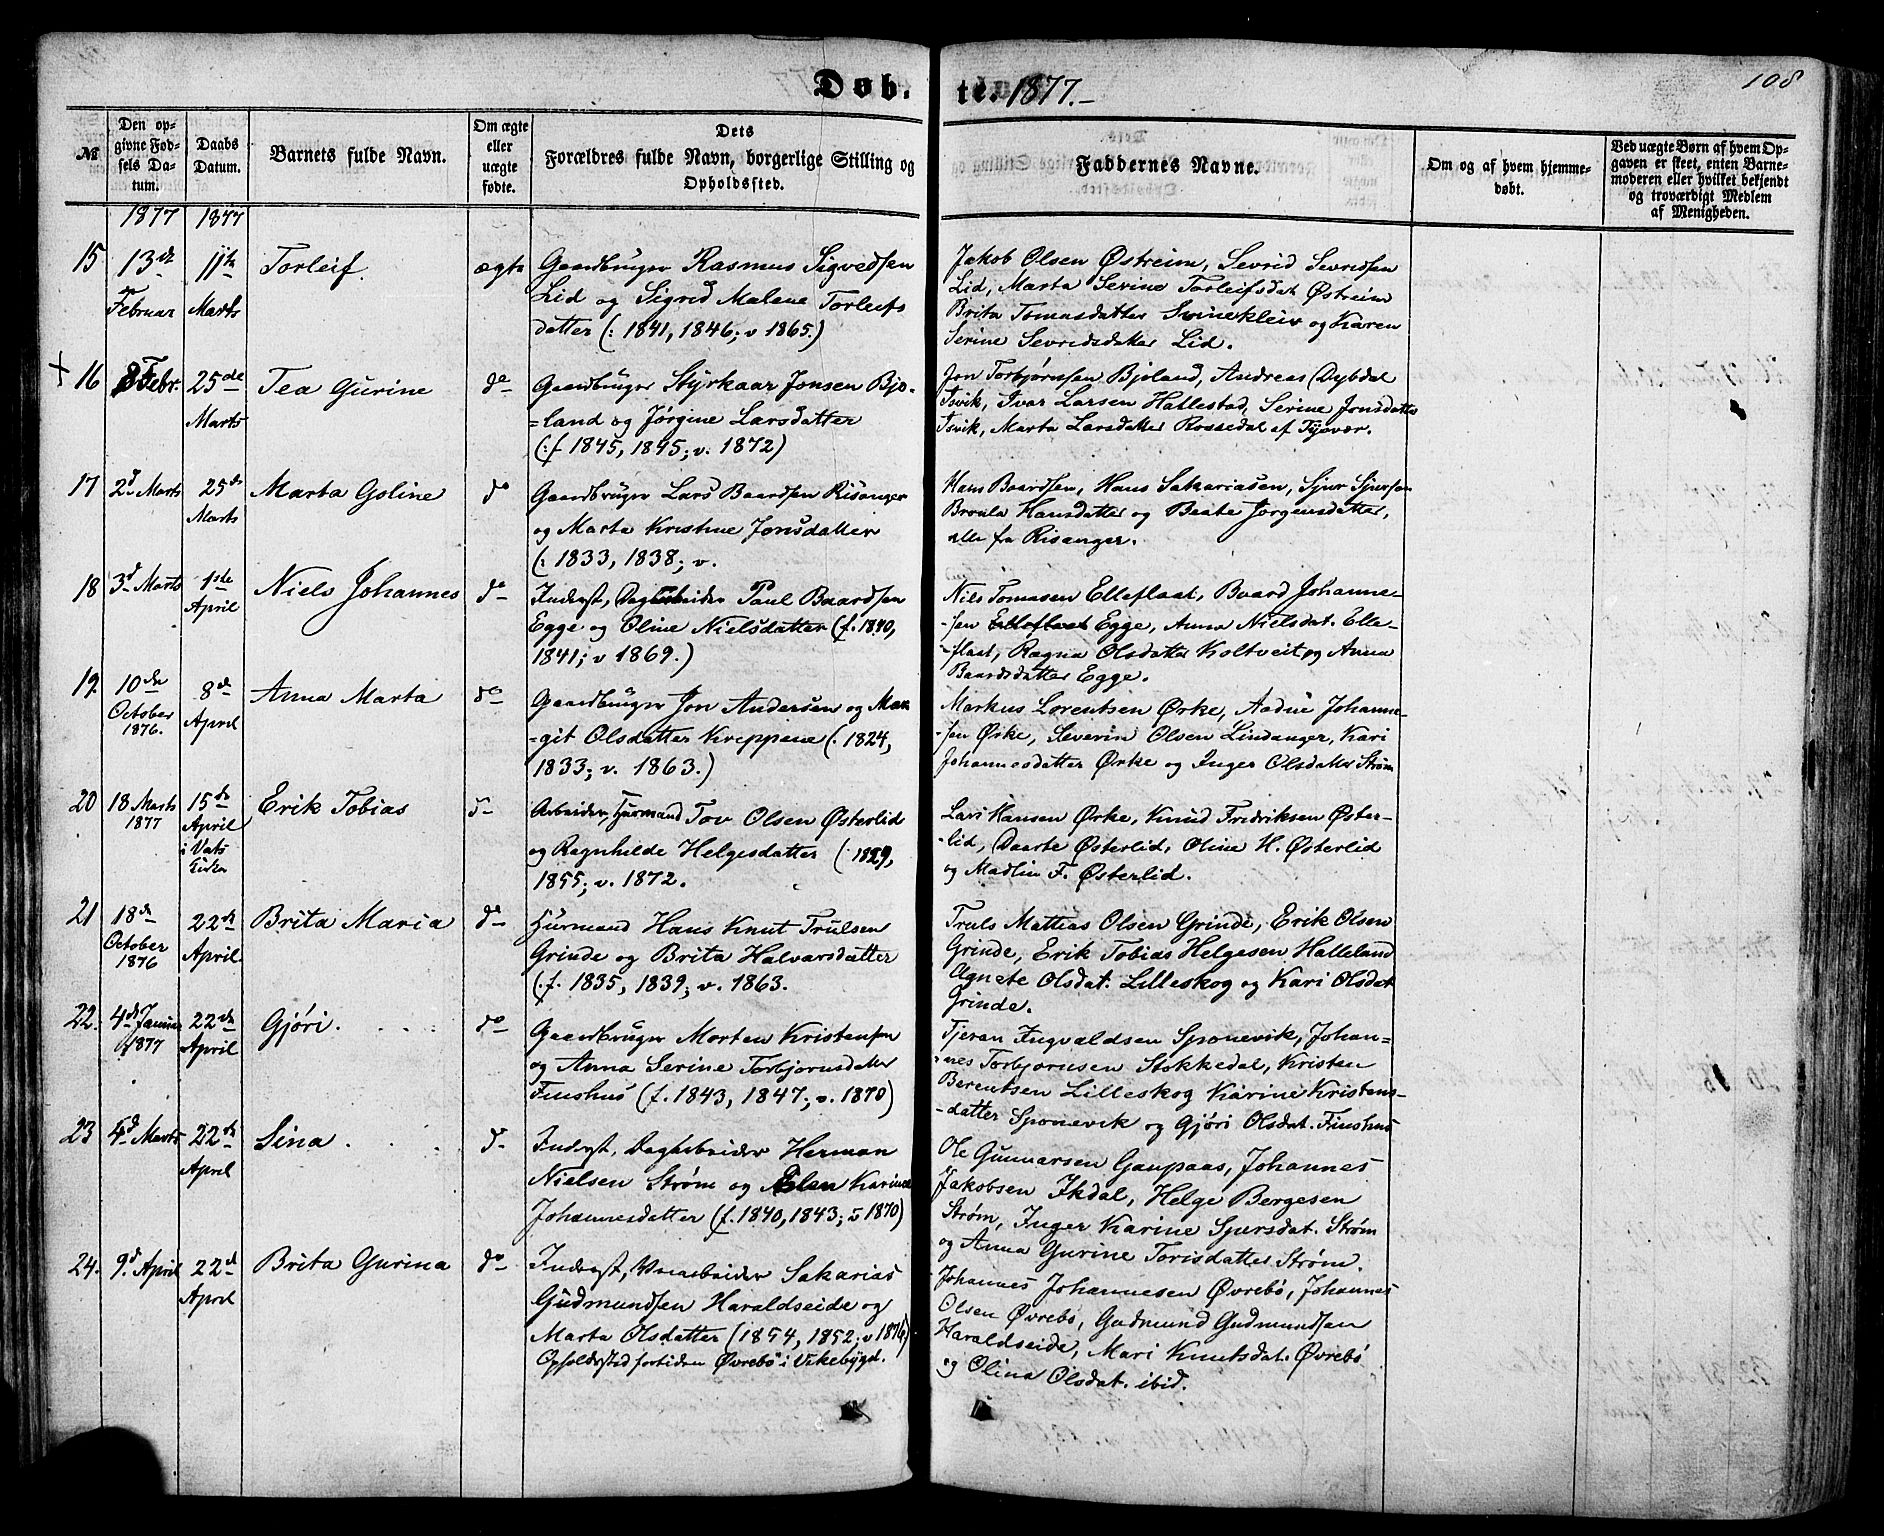 Døb. te. 1877.-
108
№
Den op-
givne Fød-
sels Da-
tum.
Daabs
Datum.
Barnets fulde Navn.
Om ægte
eller
uægte
fødte.
Dets
Forældres fulde Navn, borgerlige Stilling og
Opholdssted.
Faddernes Navne.
Om og af hvem hjemme-
døbt.
Ved uægte Børn af hvem Op-
gaven er skeet, enten Barne-
moderen eller hvilket bekjendt
og troværdigt Medlem
af Menigheden.
1877 1877
15
13de
Februar
11te
Marts
Torleif.
ægte
Gaardbruger Rasmus Sigvedsen
Lid og Sigrid Malene Torleifs
datter (: 1841, 1846; v 1865.)
Jakob Olsen Østreim, Sevrid Sevridsen
Lid, Marta Serine Torleifsdat Østreim
Brita Tomasdatter Svinekleiv og Karen
Serine Sevridsdatter Lid.
+ 16
8 Febr.
25de
Marts
Tea Gurine
do
Gaardbruger Styrkaar Jonsen Bjo-
=land og Jørgine Larsdatter
(: f 1845, 1845; v. 1872)
Jon Torbjørnsen Bjoland, Andreas Dybdal
Isvik, Ivar Larsen Hallestad, Serine Jonsdatter
Isvik, Marta Larsdatter Rossedal af Tysvær.
17
2d Marts
25de
Marts
Marta Goline
do
Gaardbruger Lars Baardsen Risanger
og Marta Kristine Jonsdatter
(: 1833, 1838; v.
Hans Baardsen, Hans Sakariasen, Sjur Sjursen
Broula Hansdatter og Beate Jørgensdatter,
alle fra Risanger.
18
3d Marts
1ste
April
Niels Johannes
do
Inderst, Dagarbeider Paul Baardsen
Egge og Oline Nielsdatter (f. 1840,
1841; v 1869.)
Niels Tomasen Elleflaat, Baard Johanne-
-sen Elleflaat Egge, Anna Nielsdat. Elle-
flaat, Ragna Olsdatter Koltveit og Anna
Baardsdatter Egge.
19.
10de
October
1876.
8de
April
Anna Marta
do
Gaardbruger Jon Andersen og Mar
-git Olsdatter Kreppene (: 1824,
1833; v. 1863.)
Markus Lorentsen Ørke, Aadne Johanne-
-sen Ørke, Severin Olsen Lindanger, Kari
Johannesdatter Ørke og Inger Olsdatter Strøm
20
18 Marts
1877
15de
April
i Vats
Kirke
Erik Tobias
do
Arbeider, Huusmand Tov Olsen Østerlid
og Ragnhilde Helgesdatter (: 1829,
1855; v. 1872.
Lars Hansen Ørke, Knud Fredriksen Øster-
-lid, Daarte Østerlid, Oline H. Østerlid
og Madlin F. Østerlid.
21
18de
October
1876
22de
April.
Brita Maria
do
Huusmand Hans Knut Trulsen
Grinde og Brita Halvarsdatter
(: f. 1835, 1839; v. 1863.
Truls Mathias Olsen Grinde, Erik Olsen
Grinde, Erik Tobias Helgesen Halleland
Agnete Olsdat. Lilleskog og Kari Olsdat
Grinde.
22.
4de Januar
1877
22de
April
Gjøri.
do
Gaardbruger Morten Kristensen
og Anna Serine Torbjørnsdatter
Finshus (f. 1843, 1847; v. 1870)
Tjeran Ingvaldsen Sponevik, Johan-
nes Torbjornsen Stokkedal, Kristen
Berentsen Lilleskog Karine Kristens-
-datter Sponevik og Gjøri Olsdat. Finshus
23
4d Marts
22de
April
Sina.
do
Inderst, Dagarbeider Herman
Nielsen Strøm og Elen Karine
Johannesdatter (f. 1840, 1843; v 1870)
Ole Gunnarsen Gaupaas, Johannes
Jakobsen Ikdal, Helge Bergesen
Strøm, Inger Karine Sjursdat. Strøm
og Anna Gurine Torisdatter Strøm.
24.
9d April
22d
April
Brita Gurina
do
Inderst, Sakarias
Gudmundsen Haraldseide og
Marta Olsdatter (1854, 1852; v 1876)
Opholdssted fortiden Øvrebø i Vikebygd.
Johannes Johannesen Øvrebø, Johannes
Olsen Øvrebø, Gudmund Gudmundsen
Haraldseide, Mari Knutsdat. Øvrebø
og Olina Olsdat. ibid.